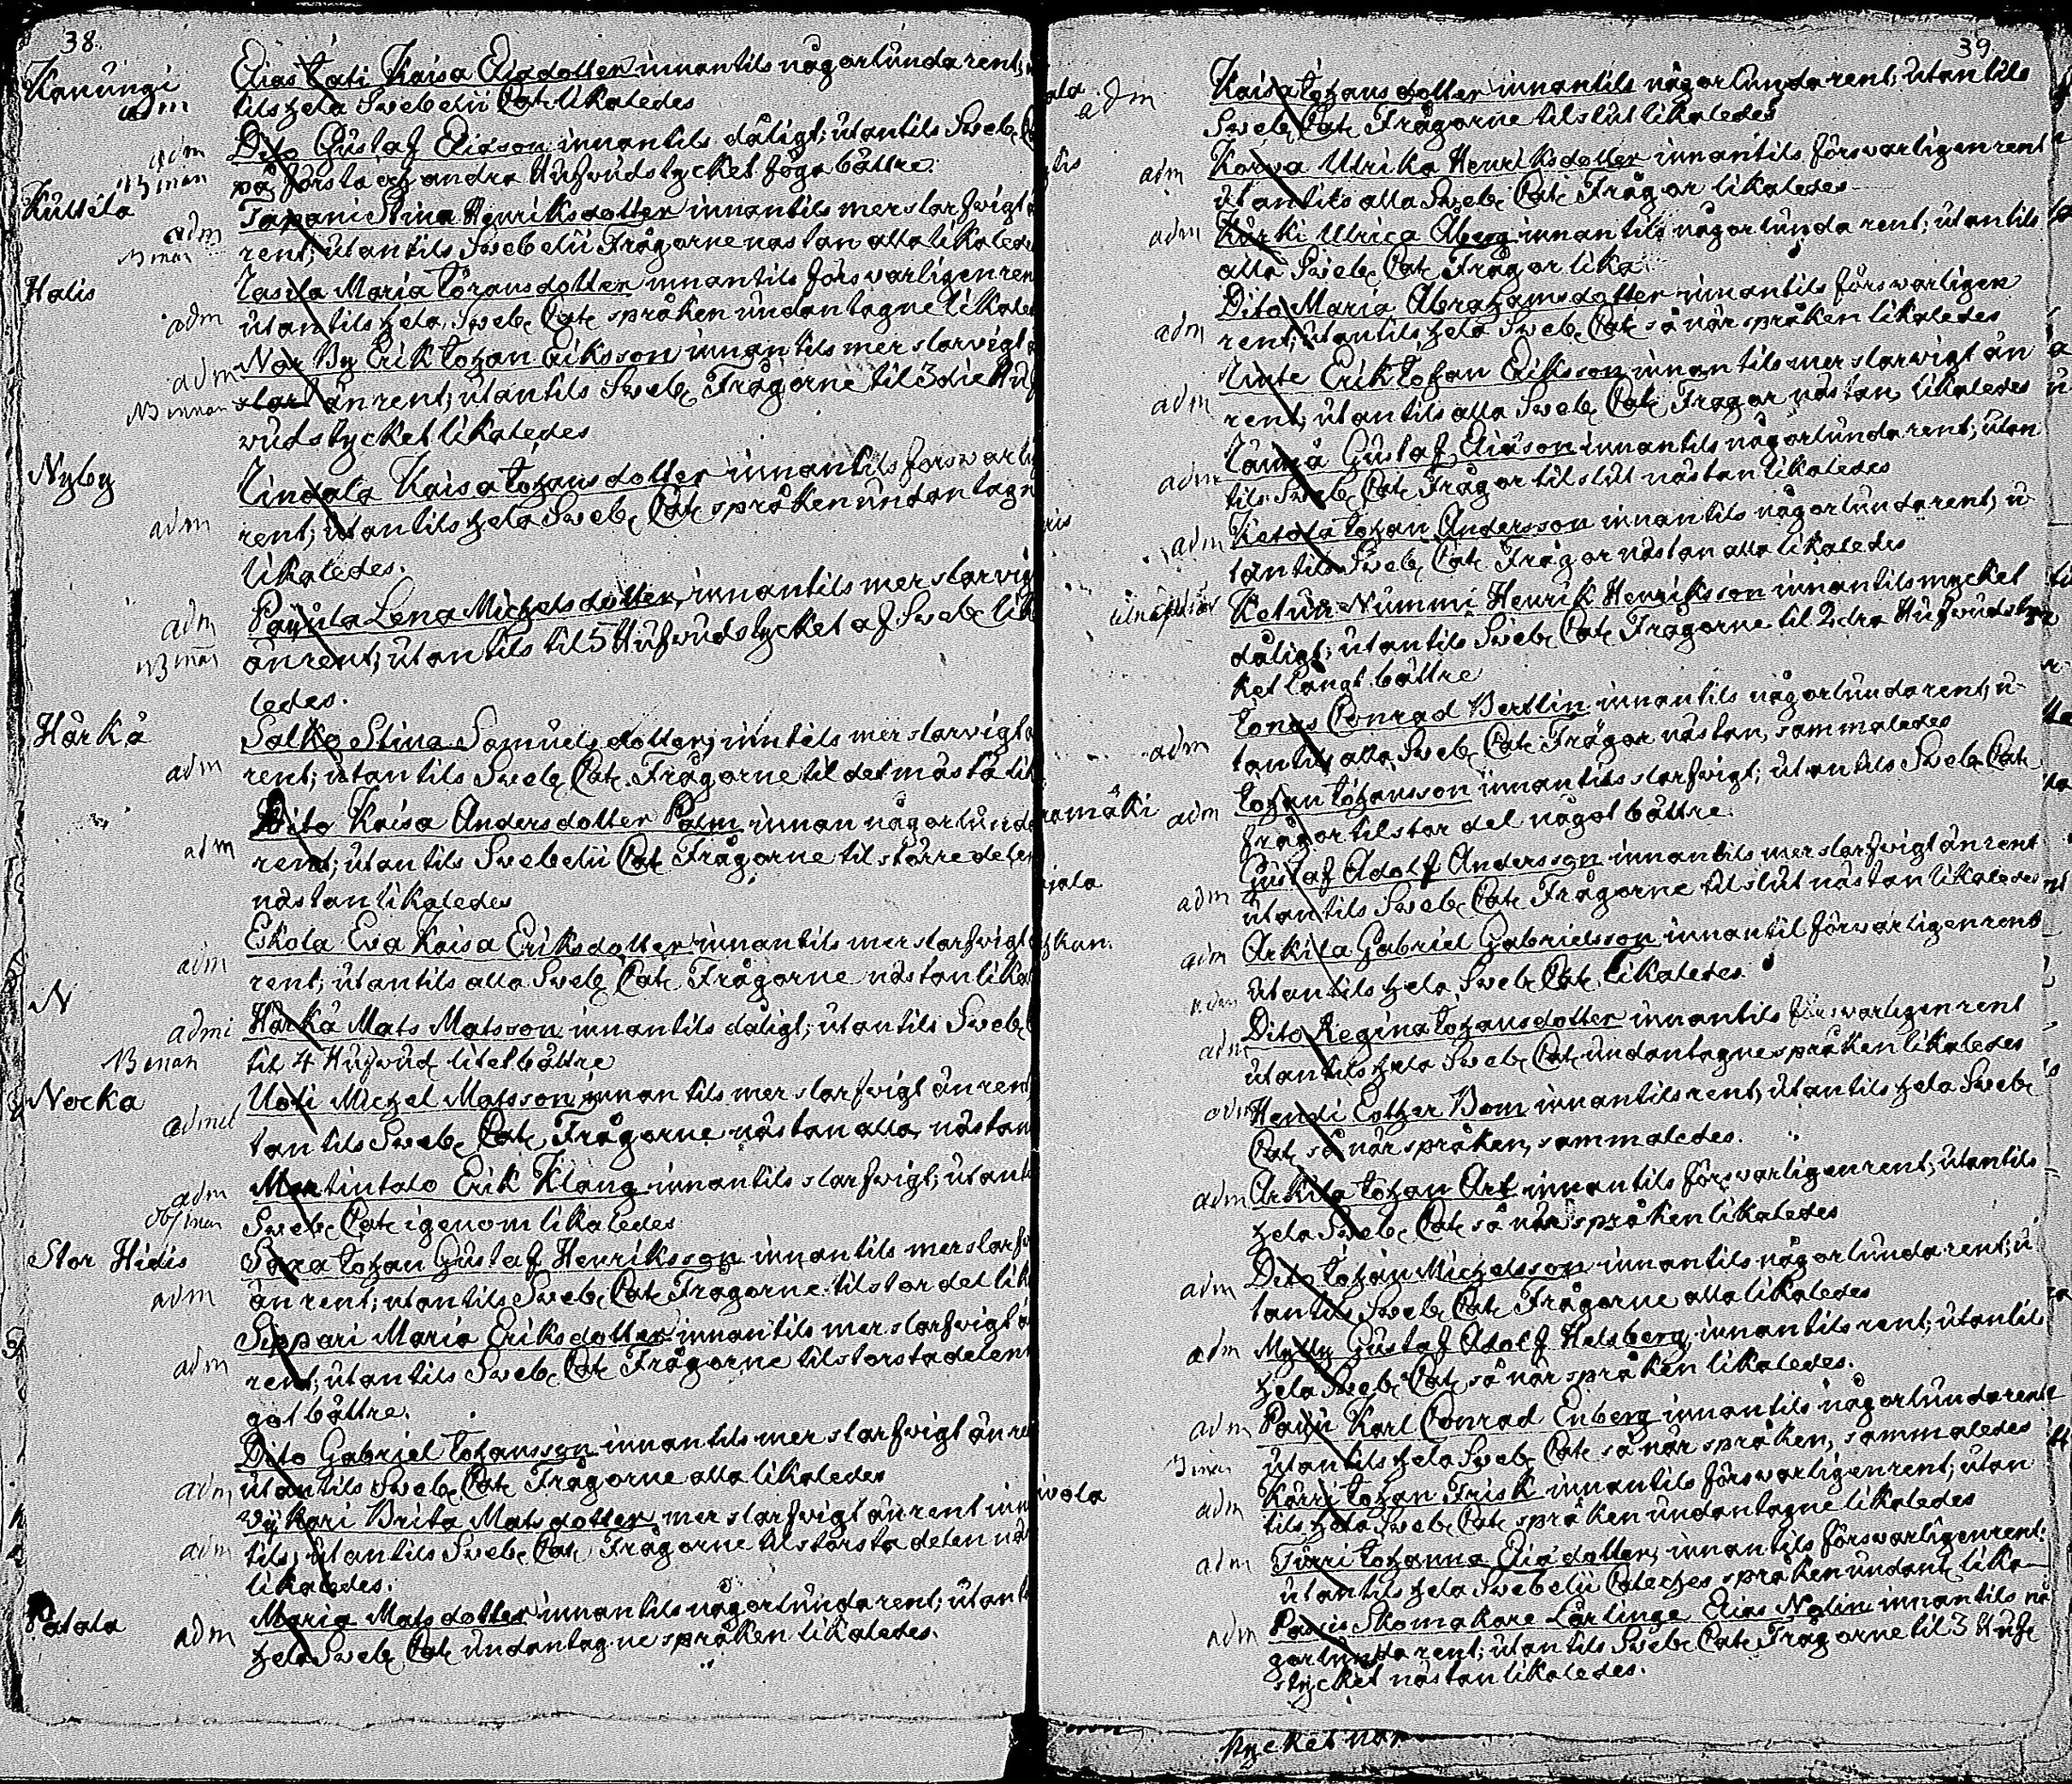 38.
Karungi Elias Joh: Kaisa Eliædotter innantils någorlunda rent;
adm tils hela Swebelii Cat: likaledes
Dito Gustaf Eliasson innantils dåligt; utantils Sweb:
adm
NB innan på första och andra Hufvudstycket föga bättre.
Kuttila Tapani Stina Henriksdotter innantils mer slarfvigt
adm
NB innan rent; utantils Swebelii Frågorne nästan alla likaled
Halis Maria Johansdotter innantils försvarligen ren
adm utantils hela Sweb: Cat: språken undantagne likale
Erik Johan Eriksson innantils mer slarvigt
adm
NB innan slar än rent; utantils Sweb: Frågorne til 3die Huf
vudstycket likaledes
Nyby Lindala Kaisa Johansdotter innantils försvarli
adm rent; utantils hela Sweb: Cat: språken undantagn
likaledes.
Lena Michelsdotter, innantils mer slarvig
adm
NB innan än rent; utantils til 5 Hufvudstycket af Sweb: lik
ledes.
Härkä Salko Stina Samuelsdotter, inntils mer slarvigt
adm rent; utantils Sweb: Cat: Frågorne til det mästa lik
Dito Kaisa Andersdotter Palm innan någorlund
adm rent; utantils Swebelii Cat: Frågorne til större delen
nästan likaledes
Eskola Eva Kaisa Eriksdotter innantils mer slarfvigt
adm rent; utantils alla Sweb: Cat: Frågorne nästan lika
N
admi Härkä Mats Matsson innantils dåligt; utantils Sweb:
NB innan til 4 Hufvud litet bättre
Nocka Uoti Michel Matsson innantils mer slarfvigt än rent
admit tantils Sweb: Cat: Frågorne nästan alla, nästan
adm Martintalo Erik Klang innantils slarfvigt; utant
Obs innan Sweb: Cat: igenom likaledes
Stor Hidis Saxa Johan Gustaf Henriksson innantils mer slarf
adm än rent; utantils Sweb: Cat: Frågorne til stor del lik
Sippari Maria Eriksdotter innantils mer slarfvigt
adm rent; utantils Sweb: Cat: Frågorne til största delen
got bättre.
Dito Gabriel Johansson innantils mer slarfvigt än re
adm utantils Sweb: Cat: Frågorne alla likaledes
Vykari Brita Matsdotter mer slarfvigt än rent inn
adm tils; utantils Sweb: Cat: Frågorne til största delen nä
likaledes.
Patala Maria Matsdotter innantils någorlunda rent; utant
adm hela Sweb: Cat: undantagne språken likaledes.
39
ala adm Kaisa Johansdotter innantils någorlunda rent; utantils
Sweb: Cat: Frågorne til slut likaledes
adm Korva Ulrika Henriksdotter innantils försvarligen rent
utantils alla Sweb: Cat: Frågor likaledes
adm Kurki Ulrica Åberg innantils någorlunda rent; utantils
alla Sweb: Cat: Frågor lika
Dito Maria Abrahamsdotter innantils försvarligen
adm rent; utantils hela Sweb: Cat: så när språken likaledes
Erik Johan Eriksson innantils mer slarvigt än
adm rent; utantils alla Sweb: Cat: Frågor nästan likaledes
Gustaf Eliasson innantils någorlunda rent; utan
adm tils Sweb: Cat: Frågor til slut nästan likaledes
adm Ketola Johan Andersson innantils någorlunda rent; u
tantils Sweb: Cat: Frågor nästan alla likaledes
Nummi Henrik Henriksson innantils mycket
dåligt; utantils Sweb: Cat: Frågorne til 2dra Hufvudstyc
ket långt bättre
Jonas Conrad Bertlin innantils någorlunda rent; u
adm tantils alla Sweb: Cat: Frågor nästan, sammaledes
ramäki adm Johan Johansson innantils slarfvigt; utantils Sweb: Cat:
frågor til stor del något bättre.
jala Gustaf Adolf Andersson innantils mer slarfvigt än rent
adm utantils Sweb: Cat: Frågorne til slut nästan likaledes
kan. adm Arkila Gabriel Gabrielsson innantil försvarligen rent
adm utantils hela Sweb: Cat: likaledes
adm Dito Regina Johansdotter innantils försvarligen rent
utantils hela Sweb: Cat: undantagne språken likaledes
adm Hendi Lother Bom innantils rent, utantils hela Sweb:
Cat: så när språken, sammaledes.
adm Arkila Johan Arf innantils försvarligen rent; utantils
hela Sweb: Cat: så när språken likaledes
Dito Johan Michelsson innantils någorlunda rent; u
adm tantils Sweb: Cat: Frågorne alla likaledes
adm Mylly Gustaf Adolf Helsberg innantils rent; utantils
hela Sweb: Cat: så när språken likaledes.
adm Karl Conrad Enberg innantils någorlunda rent
innan utantils hela Sweb: Cat: så när språken, sammaledes
vola adm Kärri Johan Frisk innantils försvarligen rent; utan
tils hela Sweb: Cat: språken undantagne likaledes
adm Johanna Eliædotter innantils försvarligen rent:
utantils hela Swebelii Cateches språken undant: lika
adm Skomakare Lärlinge Elias Nolin innantils nå
gorlunda rent; utantils Sweb: Cat: Frågorne til 3 Huf:
stycket nästan likaledes.
stycket när